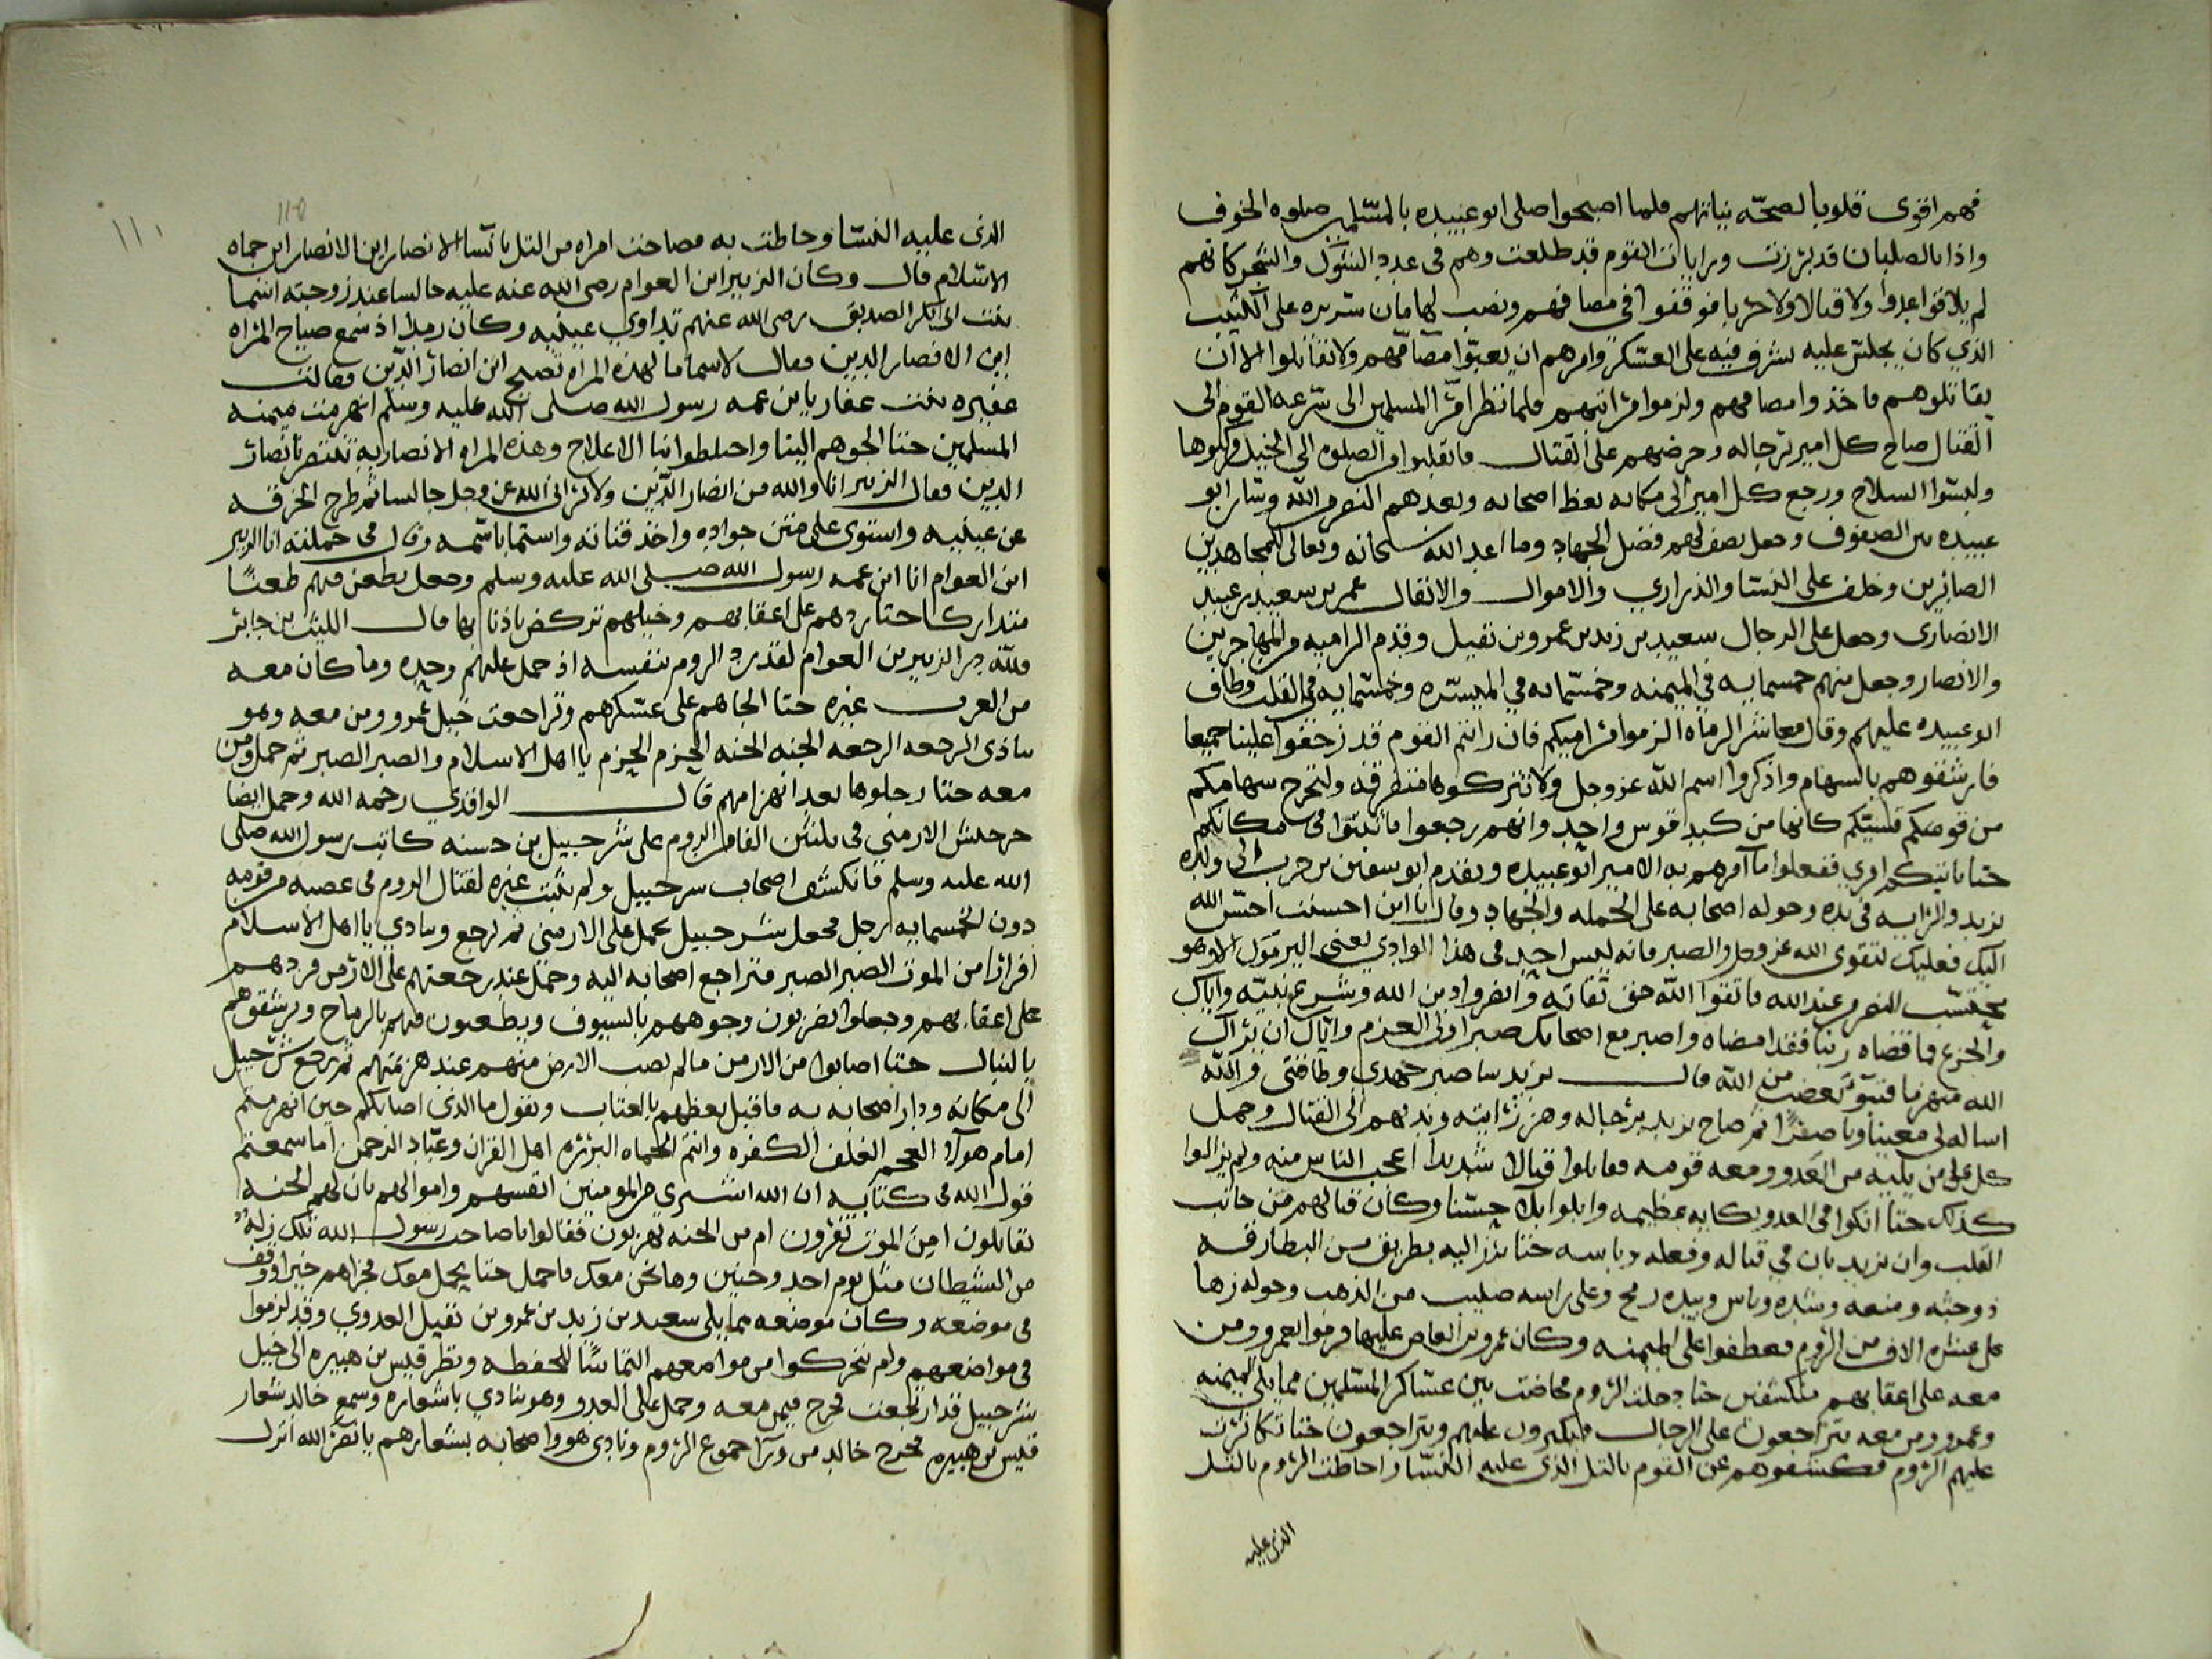 فهم اقوى قلوبا لصحه نياتهم فلما اصبحوا صلى ابو عبيده بالمسلمين صلوه الخوف
واذا بالصلبان قد برزت ورايات القوم قد طلعت وهم فى عدد الشوك والشجر كانهم
لم يلاقوا عدوا ولا قتالا ولا حربا فوقفوا فى مصافهم ونصب لهم ماهان سريره على الكثيب
الذي كان يجلس عليه يشرف فيه على العسكر وامرهم ان يعبوا مصافهم ولا تقاتلوا الا ان
يقاتلوهم فاخذوا مصافهم ولزموا مراتبهم فلما نظر امرا المسلمين الى سرعه القوم الى
القتال صاح كل امير برجاله وحرضهم على القتال فانقلبوا من الصلوه الى الخيل فركبوها
ولبسوا السلاح ورجع كل امير الى مكانه يعظ اصحابه ويعدهم النصر من الله وسار ابو
عبيده بين الصفوف وجعل يصف لهم فضل الجهاد وما اعد الله سبحانه وتعالى للمجاهدين
الصابرين وخلف على النسا والذراري والاموال والاثقال عمر بن سعيد بن عبيد
الانصارى وجعل على الرجال سعيد بن زيد بن عمرو بن نفيل وقدم الراميه من المهاجرين
والانصار وجعل منهم خمسمايه في الميمنه وخمسمايه في الميسره وخمسمايه في القلب وطاف
ابو عبيده عليهم وقال معاشر الرماه الزموا مراميكم فان رايتم القوم قد زحفوا علينا جميعا
فارشقوهم بالسهام واذكروا اسم الله عز وجل ولا تتركوها متفرقه ولتخرج سهامكم
من قوسكم كانها من كبد قوس واحد وانهم رجعوا فاثبتوا فى مكانكم
حتا ياتيكم امري ففعلوا ما امرهم به الامير ابو عبيده وتقدم ابو سفين بن حرب الى ولده
يزيد والرايه فى يده وحوله اصحابه على الحمله والجهاد وقال يا ابن احسنت احسن الله
اليك فعليك بتقوى الله عز وجل والصبر فانه ليس احد فى هذا الوادي يعنى اليرموك الا وهو
النصر من عند الله فاتقوا الله حق تقاته وانصروا دين الله وشرع نبيه واياك
والجزع فما قضاه ربنا فقد امضاه واصبر مع اصحابك صبر اولى العزم واياك ان يراك
الله منهزما فتبوء بغضب من الله قال يزيد ساصبر جهدي وطاقتى والله
اساله لى معينا وناصرا ثم صاح يزيد برجاله وهز رايته وندبهم الى القتال وحمل
كل على من يليه من العدو ومعه قومه فقاتلوا قتالا شديدا اعجب الناس منه ولم يزالوا
كذلك حتا انكوا فى العدو نكايه عظيمه وابلوا بلا حسنا وكان قتالهم من جانب
القلب وان يزيد بان في قتاله وفعله وباسه حتا برز اليه بطريق من البطارقه
ذو جثه ومنعه وشده وباس وبيده رمح وعلى راسه صليب من الذهب وحوله زها
على عشره الاف من الروم فعطفوا على الميمنه وكان عمرو بن العاص عليها فرموا لعمرو ومن
معه على اعقابهم منكشفين حتا دخلت الروم فخاضت بين عساكر المسلمين مما يلى الميمنه
وعمرو ومن معه يتراجعون على الرجال فيكبرون عليهم ويتراجعون حتا تكاثرت
عليهم الروم فكشفوهم عن القوم بالتل الذى عليه النسا واحاطت الروم بالتل
الذى عليه
١١٥
١١٠
الذى عليه النسا وحاطت به فصاحت امراه من التل يا نسا الانصار اين الانصار اين حماه
الاسلام قال وكان الزبير ابن العوام رضى الله عنه عليه جالسا عند زوجته اسما
بنت ابى بكر الصديق رضى الله عنهم تداوي عينيه وكان رمدا اذ سمع صياح المراه
اين الانصار الدين فقال لاسما ما لهذه المراه تصيح اين انصار الدين فقالت
عفيره بنت عفار يا بن عمه رسول الله صلى الله عليه وسلم انهزمت ميمنه
المسلمين حتا الجوهم الينا واختلطوا بنا الاعلاج وهذه المراه الانصاريه تنتصر بانصار
الدين فقال الزبير انا والله من انصار الدين ولا يرانى الله عز وجل جالسا ثم طرح الخرقه
عن عينيه واستوى على متن جواده واخذ قناته واستما باسمه وقال فى حملته انا الزبير
ابن العوام انا ابن عمه رسول الله صلى الله عليه وسلم وجعل يطعن فيهم طعنا
متداركا حتا ردهم على اعقابهم وخيلهم تركض باذنابها قال الليث بن جابر
فلله در الزبير بن العوام لقد رد الروم بنفسه اذ حمل عليهم وحده وما كان معه
من العرب غيره حتا الجاهم على عسكرهم وتراجعت خيل عمرو ومن معه وهو
ينادى الرجعه الرجعه الجنه الجنه الحزم الحزم يا اهل الاسلام والصبر الصبر ثم حمل ومن
معه حتا رحلوها بعد انهزامهم قال الواقدي رحمه الله وحمل ايضا
جرجيس الارمني فى ثلثين الفا من الروم على شرحبيل بن حسنه كاتب رسول الله صلى
الله عليه وسلم فانكشف اصحاب شرحبيل ولم يثبت غيره لقتال الروم فى عصبه من قومه
دون الخمسمايه رجل فجعل شرحبيل يحمل على الارمنى ثم يرجع وينادي يا اهل الاسلام
افرارا من الموت الصبر الصبر فتراجع اصحابه اليه وحمل عند رجعتهم على الارمن فردهم
على اعقابهم وجعلوا يضربون وجوههم بالسيوف ويطعنون فيهم بالرماح ويرشقوهم
بالنبال حتا اصابوا من الارمن ما لم يصب الارمن منهم عند هزيمتهم ثم رجع شرحبيل
الى مكانه ودار اصحابه به فاقبل يعظهم بالعتاب ويقول ما الذى اصابكم حين انهزمتم
امام هولا العجم الغلف الكفره وانتم الحماه البرره اهل القران وعباد الرحمن اما سمعتم
قول الله فى كتابه ان الله اشترى من المومنين انفسهم واموالهم بان لهم الجنه
تقاتلون امن الموت تفرون ام من الجنه تهربون فقالوا يا صاحب رسول الله تلك زله
من الشيطان مثل يوم احد وحنين وها نحن معك فاحمل حتا نحمل معك فجزاهم خيرا ووقف
فى موضعه وكان موضعه مما يلى سعيد بن زيد بن عمرو بن نفيل العدوي وقد لزموا
فى مواضعهم ولم يتحركوا من مواضعهم التماسا للحفظه ونظر قيس بن هبيره الى خيل
شرحبيل قد ارتجعت فخرج فيمن معه وحمل على العدو وهو ينادي باشعاره وسمع خالد شعار
قيس بن هبيره فخرج خالد من ورا جموع الروم ونادى هو واصحابه بشعارهم يا نصر الله انزل